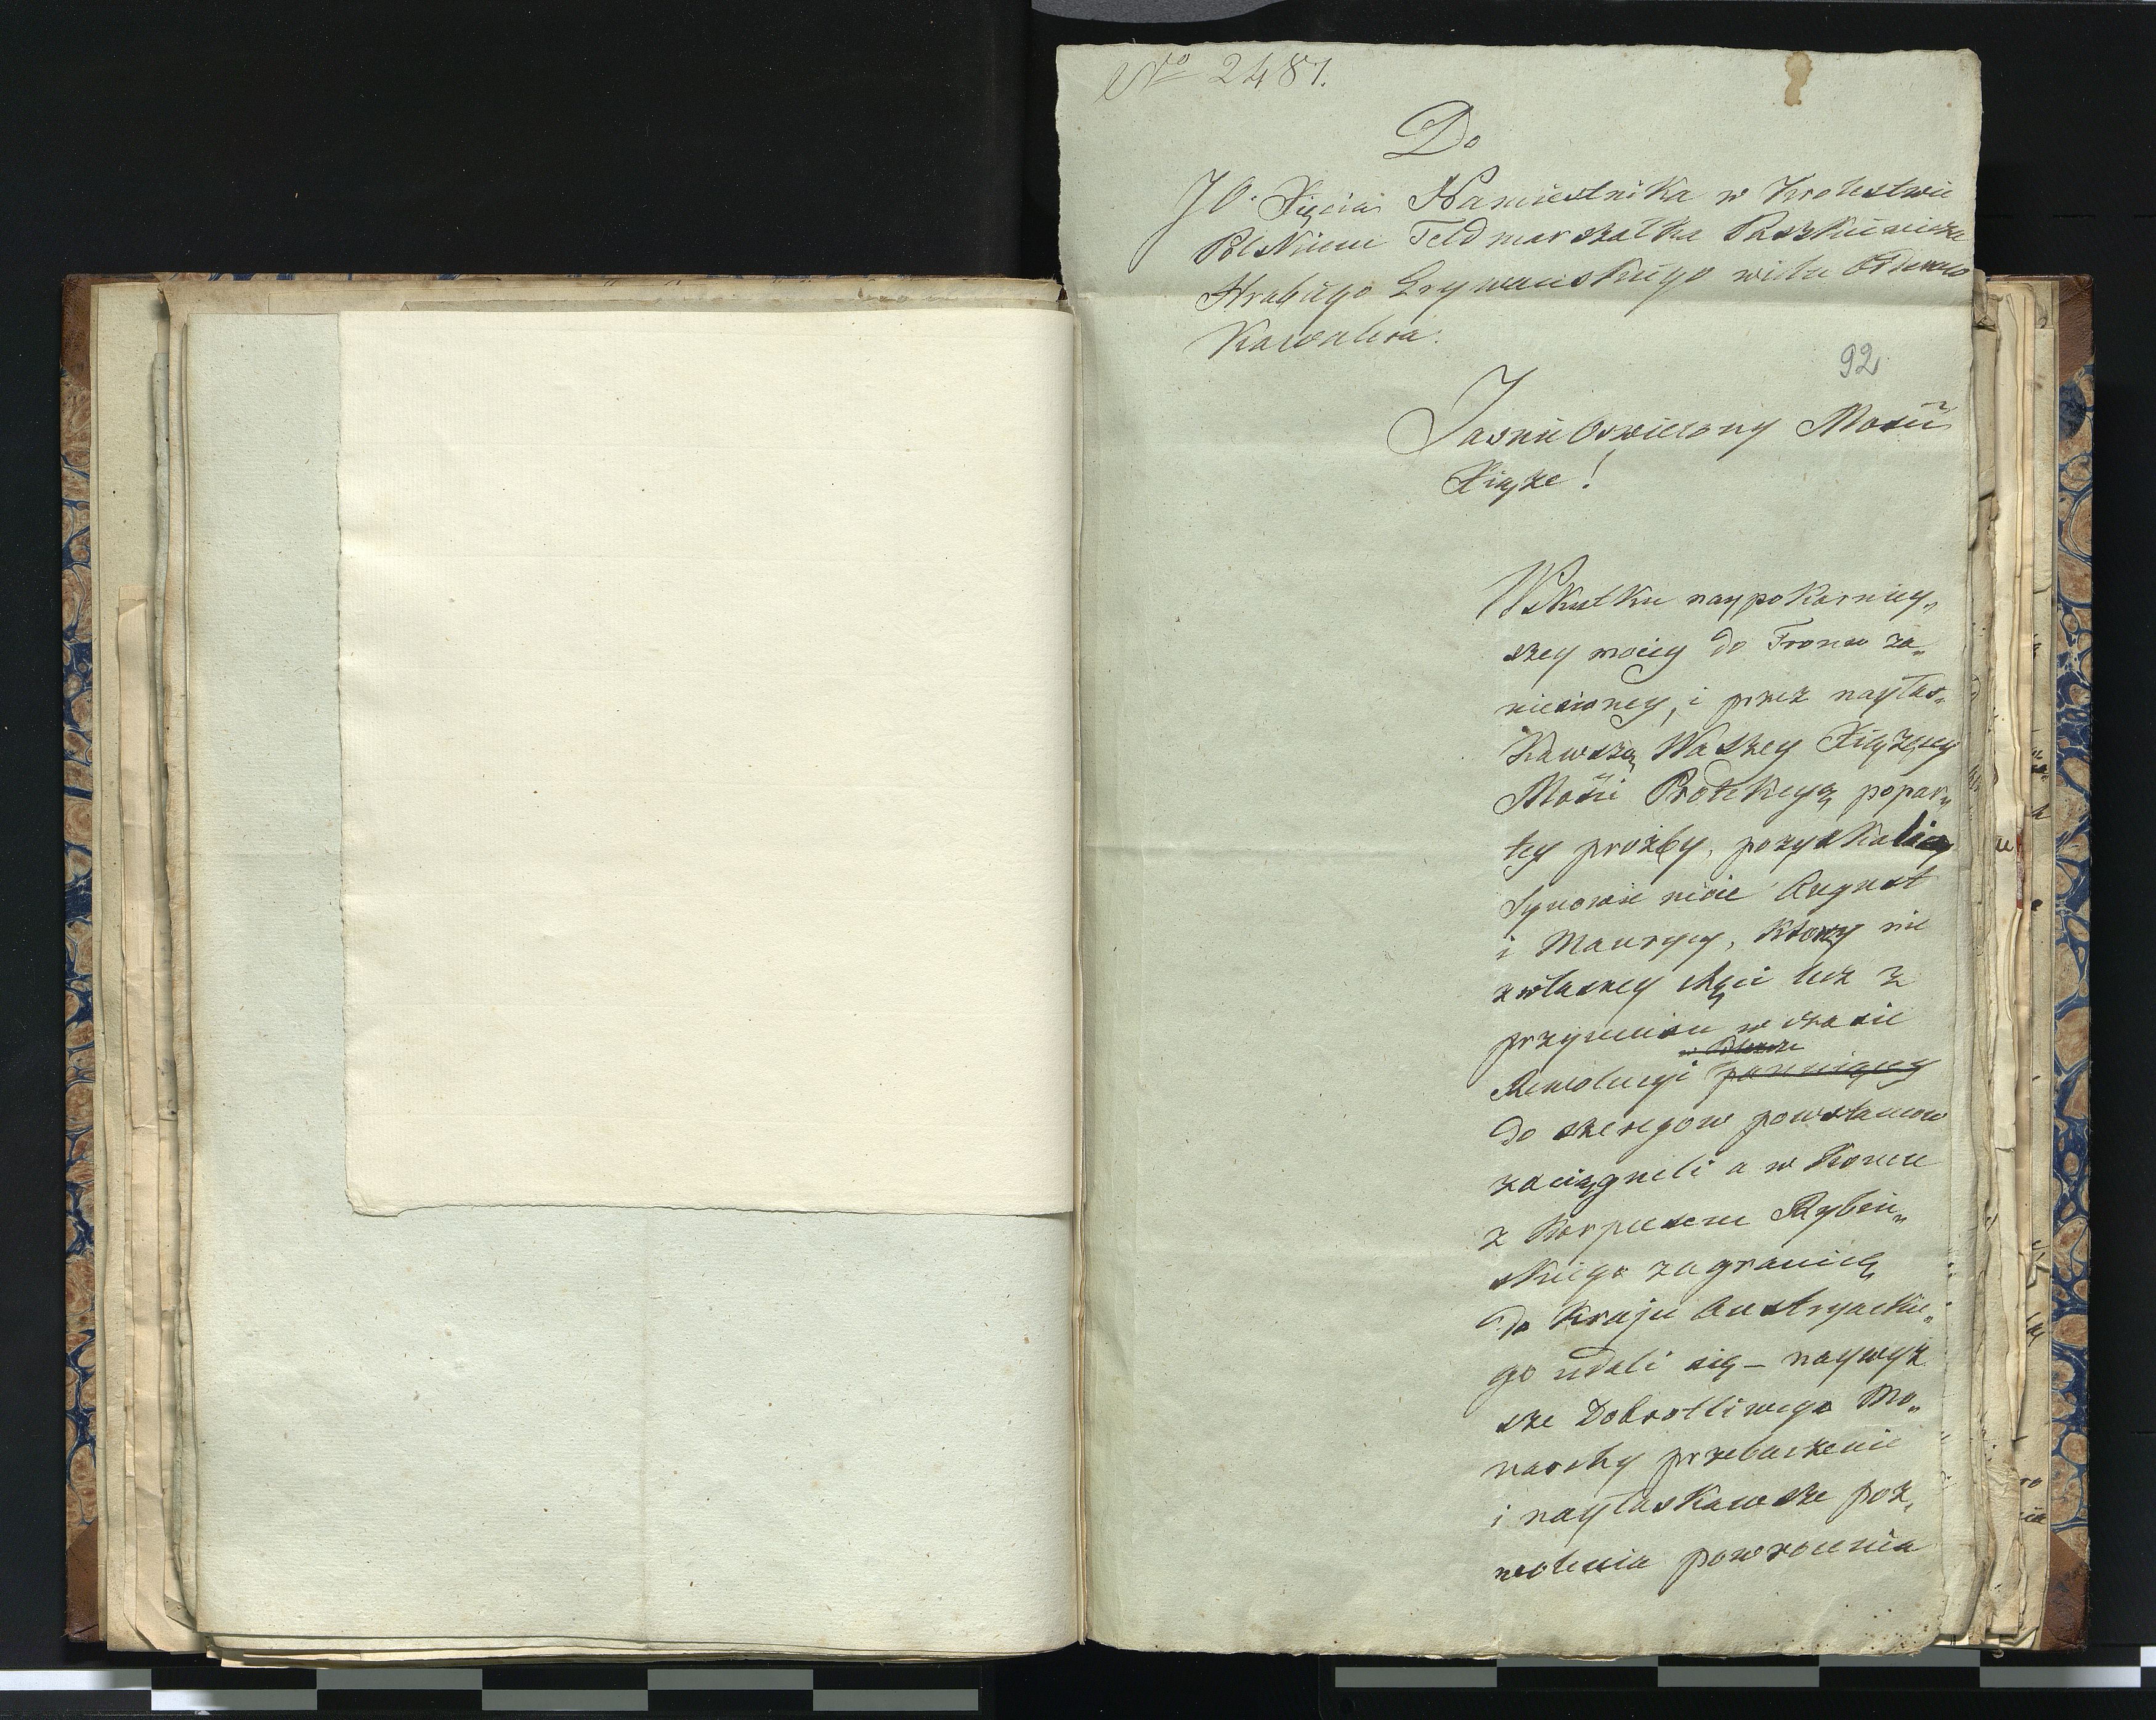 No 2481.
Do
JO. Xięcia Namiestnika w Krolestwie
Polskiem Feldmarszałka Paszkiewicza
Hrabiego Erywanskiego wielu Orderow
Kawalera.
92
Jasnie Oswiecony Mości
Xiąże!
Wskutku naypokorniey„
szey moiey do Tronu za„
niesioney, i przez nayłas„
kawszą Waszey Xiążęcey
Mości Protekcyą popar„
tey proźby, pozyskali
Synowie moie August
i Maurycy, ktorzy nie
z własney chęci lecz z
przymusu w czasie
Rewolucyi
do szeregow powstancow
zaciągneli a w koncu
z Korpusem Rybin„
skiego zagranicę
do Kraju Austryackie„
go udali się – naywyż
sze Dobrotliwego Mo„
narchy przebaczenie
i nayłaskawsze poz„
wolenia powrocenia